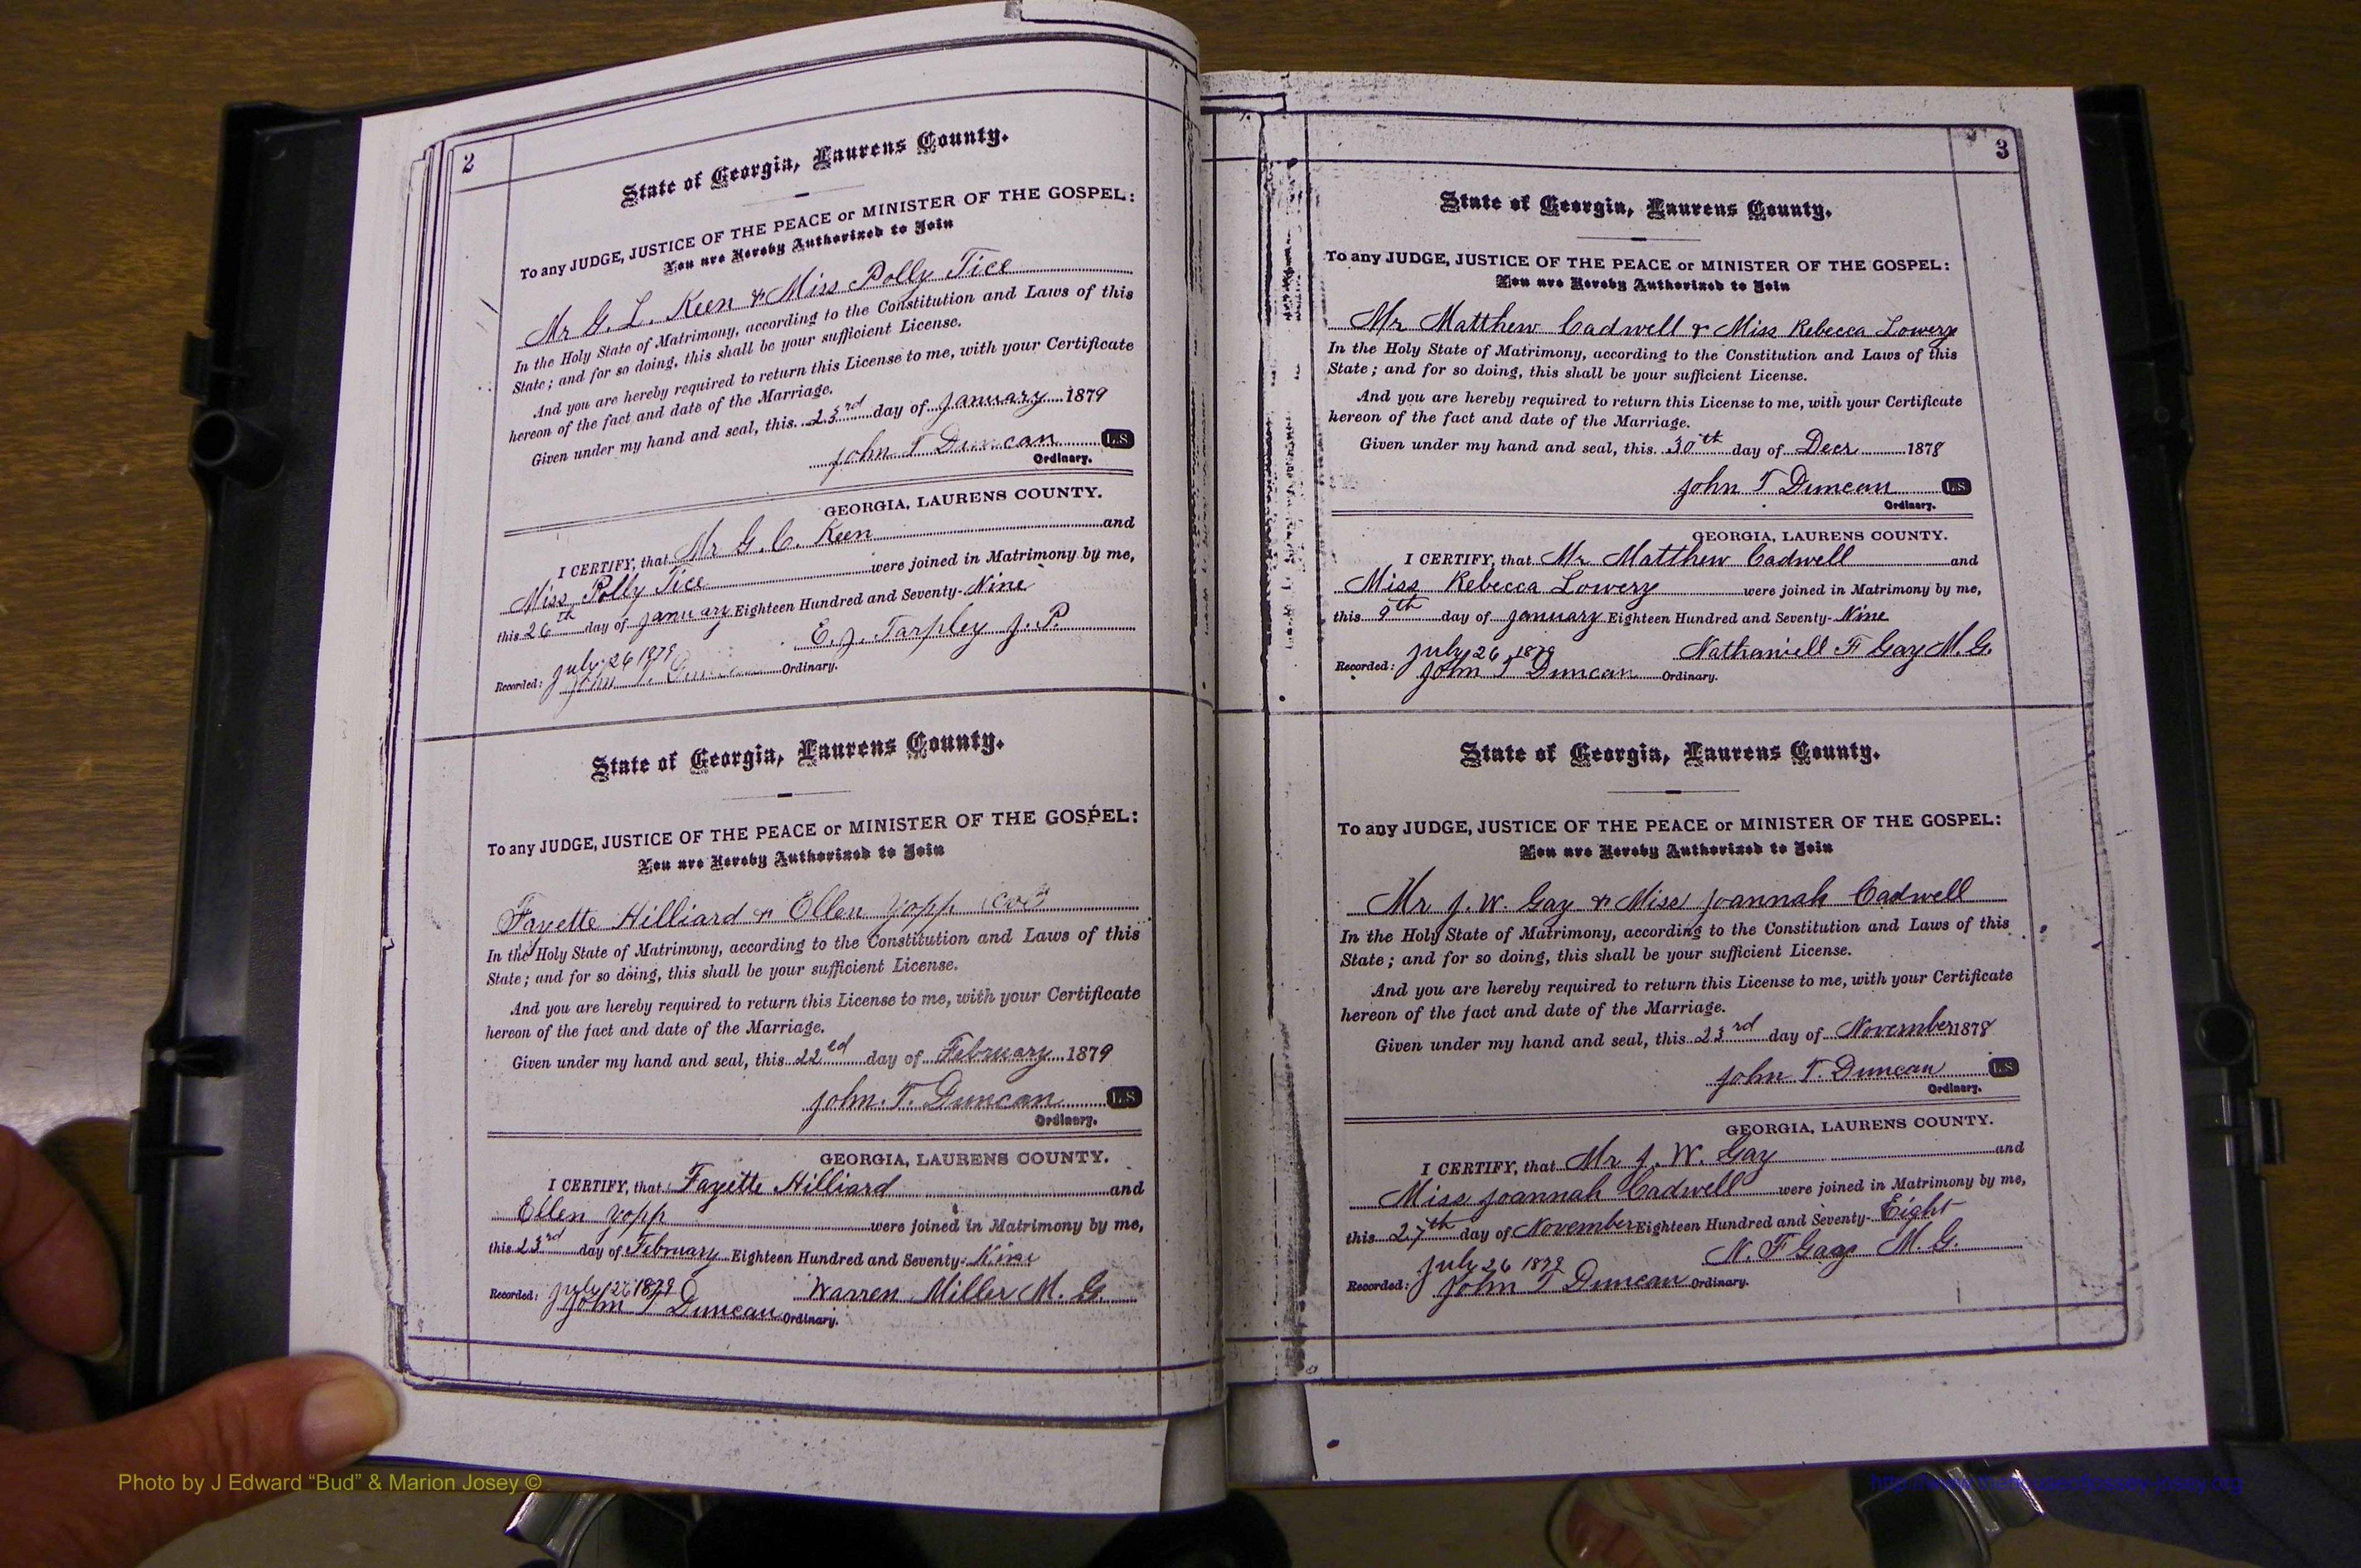 2
State of Georgia, Laurens County.
To any JUDGE, JUSTICE OF THE PEACE or MINISTER OF THE GOSPEL:
You are Hereby Authorized to Join
Mr G. L. Keen & Miss Polly Tice
In the Holy State of Matrimony, according to the Constitution and Laws of this
State; and for so doing, this shall be your sufficient License.
And you are hereby required to return this License to me, with your Certificate
hereon of the fact and date of the Marriage.
Given under my hand and seal, this 23rd day of January 1879
John T Duncan L.S
Ordinary.
GEORGIA, LAURENS COUNTY.
I CERTIFY, that Mr G. C. Keen and
Miss Polly Tice were joined in Matrimony by me,
this 26th day of January Eighteen Hundred and Seventy-Nine
E. J. Tarpley J. P.
Recorded: July 26 1879
John T. Duncan Ordinary.
State of Georgia, Laurens County.
To any JUDGE, JUSTICE OF THE PEACE or MINISTER OF THE GOSPEL:
You are Hereby Authorized to Join
Fayette Hilliard & Ellen Yopp
In the Holy State of Matrimony, according to the Constitution and Laws of this
State; and for so doing, this shall be your sufficient License.
And you are hereby required to return this License to me, with your Certificate
hereon of the fact and date of the Marriage.
Given under my hand and seal, this 22ed day of February 1879
John. T. Duncan L.S
Ordinary.
GEORGIA, LAURENS COUNTY.
I CERTIFY, that Fayette Hilliard and
Ellen Yopp were joined in Matrimony by me,
this 23rd day of February Eighteen Hundred and Seventy-Nine
Warren Miller M. G.
Recorded: July 26 1879
John T Duncan Ordinary.
3
State of Georgia, Laurens County.
To any JUDGE, JUSTICE OF THE PEACE or MINISTER OF THE GOSPEL:
You are Hereby Authorized to Join
Mr Matthew Cadwell & Miss Rebecca Lowery
In the Holy State of Matrimony, according to the Constitution and Laws of this
State; and for so doing, this shall be your sufficient License.
And you are hereby required to return this License to me, with your Certificate
hereon of the fact and date of the Marriage.
Given under my hand and seal, this 30th day of Decr 1878
John T Duncan L.S
Ordinary.
GEORGIA, LAURENS COUNTY.
I CERTIFY, that Mr Matthew Cadwell and
Miss Rebecca Lowery were joined in Matrimony by me,
this 9th day of January Eighteen Hundred and Seventy-Nine
Nathaniell F Gay M. G.
Recorded: July 26, 1879
John T Duncan Ordinary.
State of Georgia, Laurens County.
To any JUDGE, JUSTICE OF THE PEACE or MINISTER OF THE GOSPEL:
You are Hereby Authorized to Join
Mr J. W. Gay & Miss Joannah Cadwell
In the Holy State of Matrimony, according to the Constitution and Laws of this
State; and for so doing, this shall be your sufficient License.
And you are hereby required to return this License to me, with your Certificate
hereon of the fact and date of the Marriage.
Given under my hand and seal, this 23rd day of November 1878
John T. Duncan L.S
Ordinary.
GEORGIA, LAURENS COUNTY.
I CERTIFY, that Mr J. W. Gay and
Miss Joannah Cadwell were joined in Matrimony by me,
this 27th day of November Eighteen Hundred and Seventy-Eight
N. F Gay M. G.
Recorded: July 26 1879
John T Duncan Ordinary.
Photo by J Edward “Bud” & Marion Josey ©